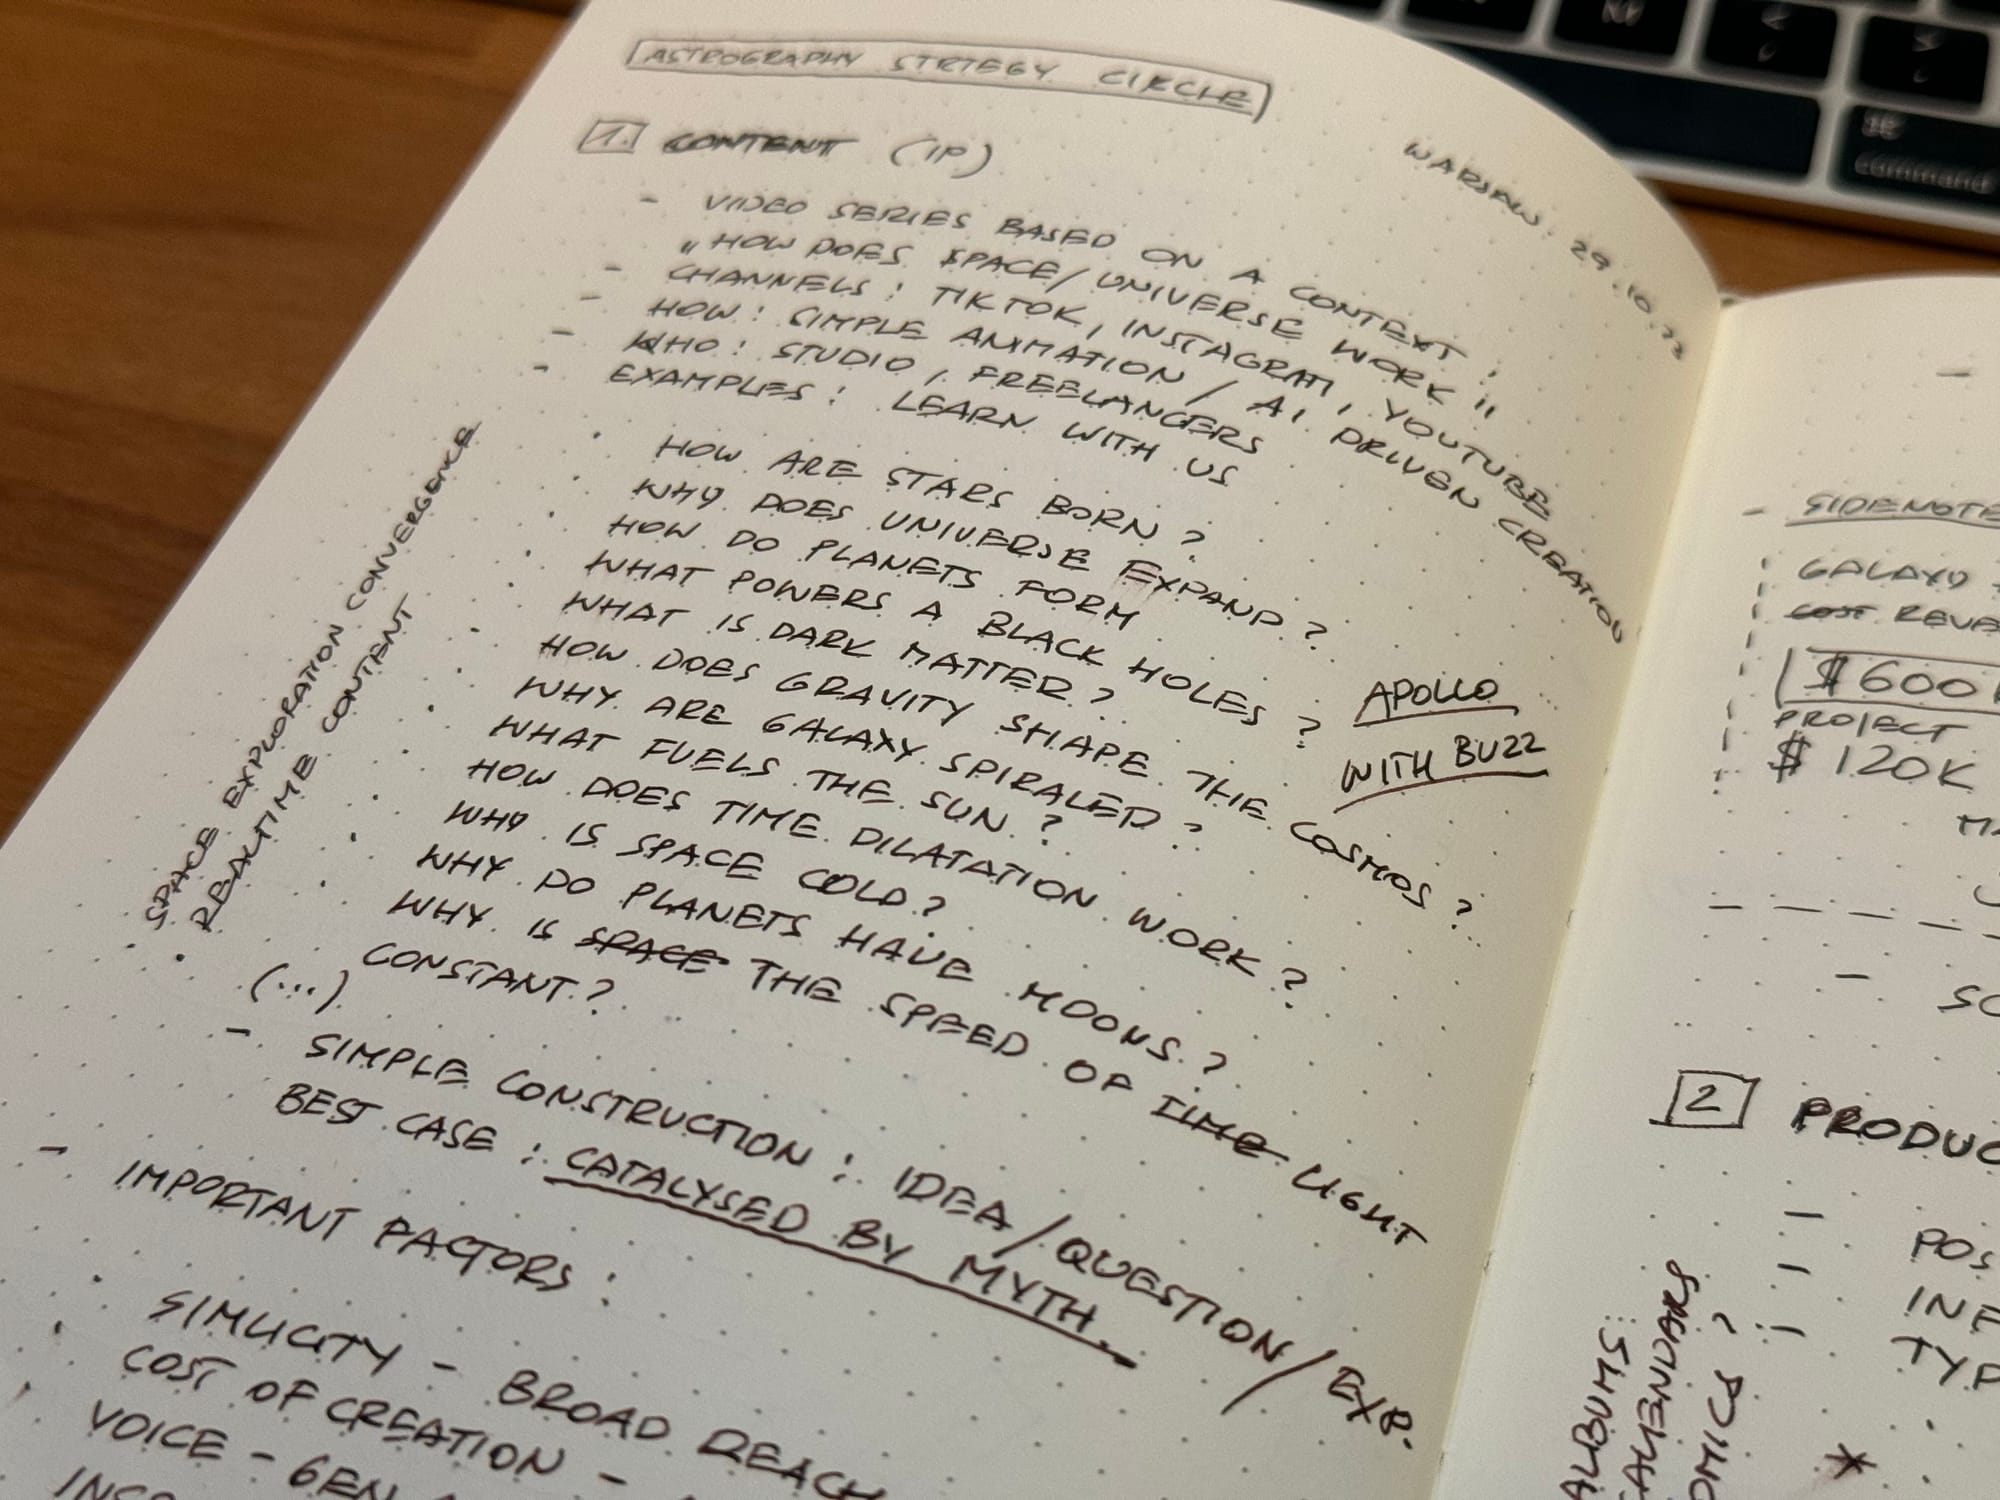 ASTROGRAPHY STRTEGY CIRCLE
WARSAW. 29.10.23
1. CONTENT (IP)
- VIDEO SERIES BASED ON A CONTEXT:
„HOW DOES SPACE/UNIVERSE WORK"
- CHANNELS: TIKTOK, INSTAGRAM, YOUTUBE
- HOW: SIMPLE ANIMATION / AI DRIVEN CREATION
- WHO: STUDIO, FREELANCERS
- EXAMPLES: LEARN WITH US
· HOW ARE STARS BORN?
· WHY DOES UNIVERSE EXPAND?
· HOW DO PLANETS FORM
· WHAT POWERS A BLACK HOLES?
· WHAT IS DARK MATTER?
· HOW DOES GRAVITY SHAPE THE COSMOS?
· WHY ARE GALAXY SPIRALED?
· WHAT FUELS THE SUN?
· HOW DOES TIME DILATATION WORK?
· WHY IS SPACE COLD?
· WHY DO PLANETS HAVE MOONS?
· WHY IS SPACE THE SPEED OF TIME LIGHT
CONSTANT?
(...)
- SIMPLE CONSTRUCTION: IDEA/QUESTION/EXP.
BEST CASE: CATALYSED BY MYTH.
- IMPORTANT FACTORS:
· SIMLICITY - BROAD REACH
COST OF CREATION -
VOICE - GEN
APOLLO
WITH BUZZ
SPACE EXPLORATION CONVERGENCE
REALTIME CONTENT
- SIDENOTE
GALAXY
COST REVE
$600
PROJECT
$120K
2 PRODUC
- POS
- INE
- TYP
ALBUMS
*